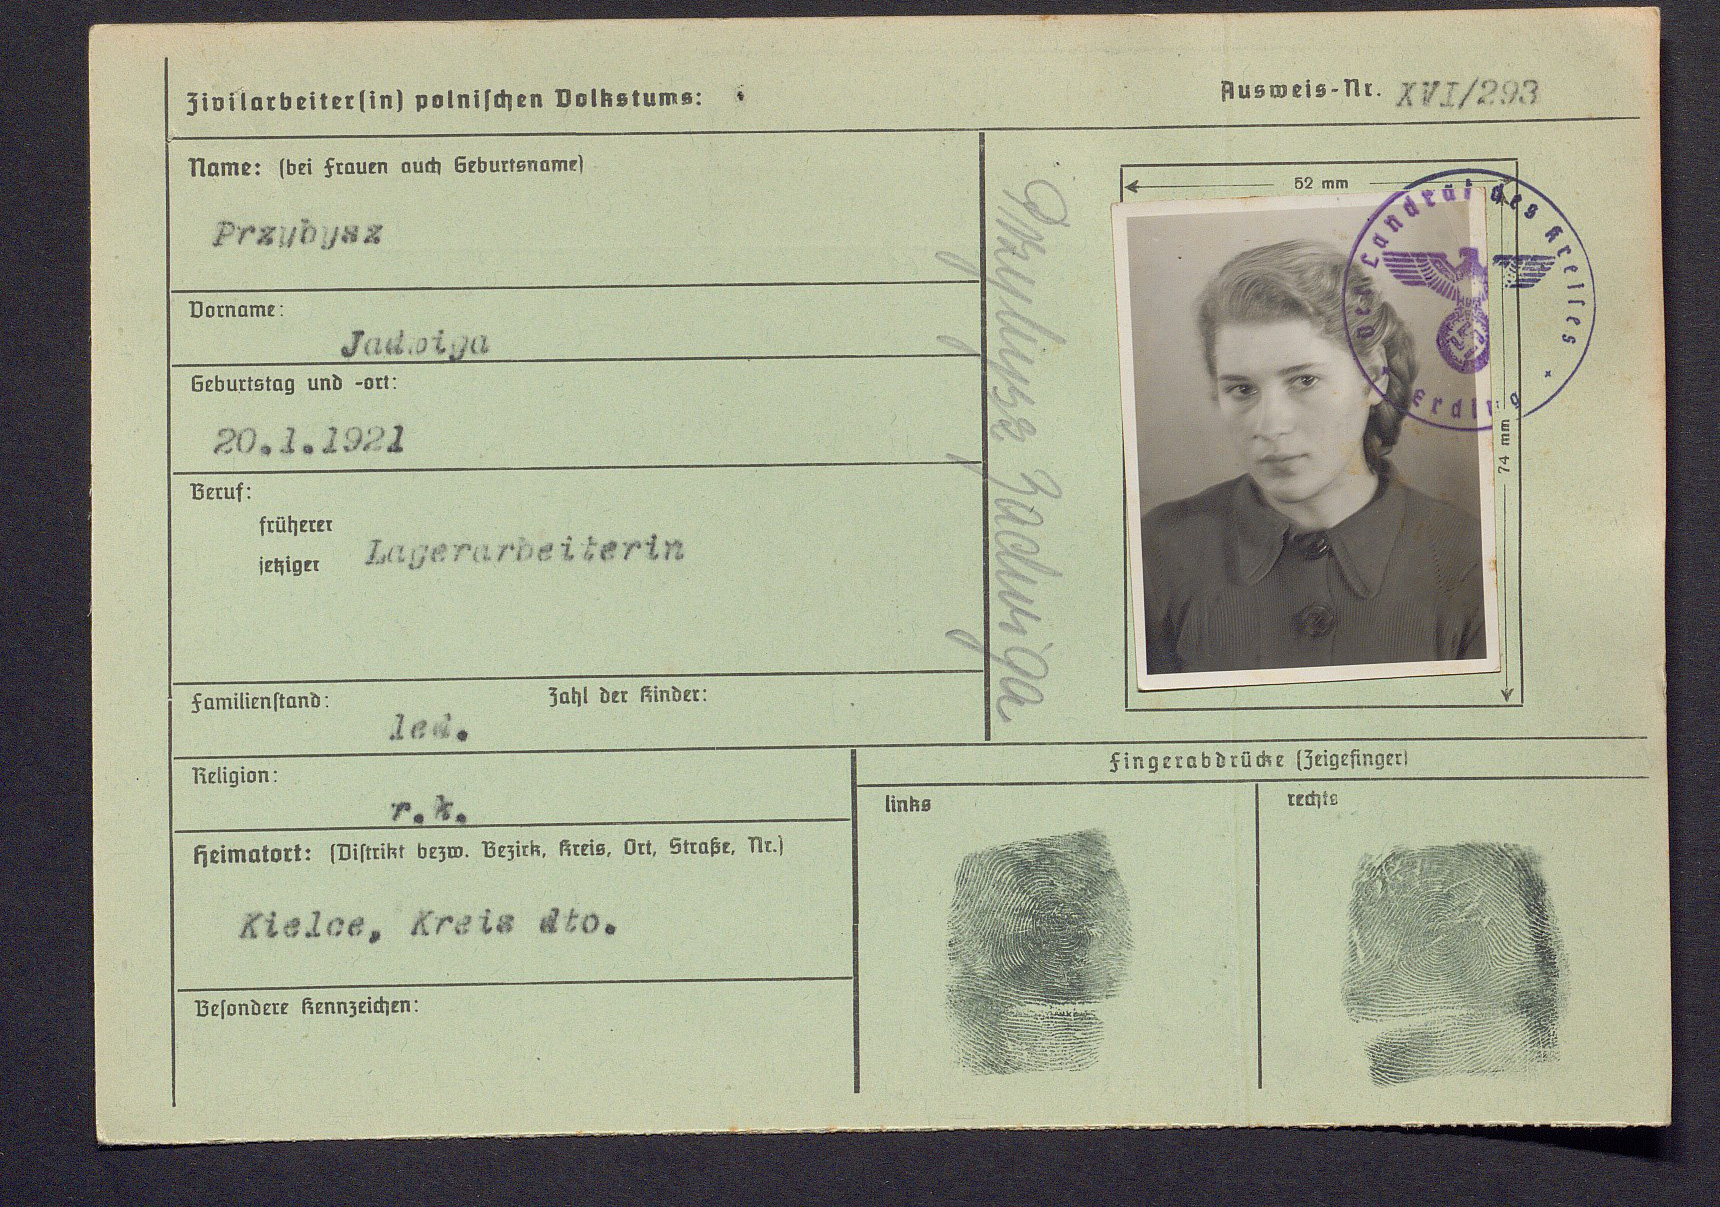 Zivilarbeiter(in) polnischen Volkstums:
Ausweis-Nr. XVI/293
Name: (bei Frauen auch Geburtsname)
Przybysz
Vorname:
Jadwiga
Geburtstag und -ort:
20.1.1921
Beruf:
früherer
jetziger
Lagerarbeiterin
Familienstand:
led.
Zahl der Kinder:
Religion:
r.k.
Heimatort: (Distrikt bezw. Bezirk, Kreis, Ort, Straße, Nr.)
Kielce, Kreis dto.
Besondere Kennzeichen:
Przybysz Jadwiga
52 mm
74 mm
Der Landrat des Kreises
Erding
Fingerabdrücke (Zeigefinger)
links
rechts